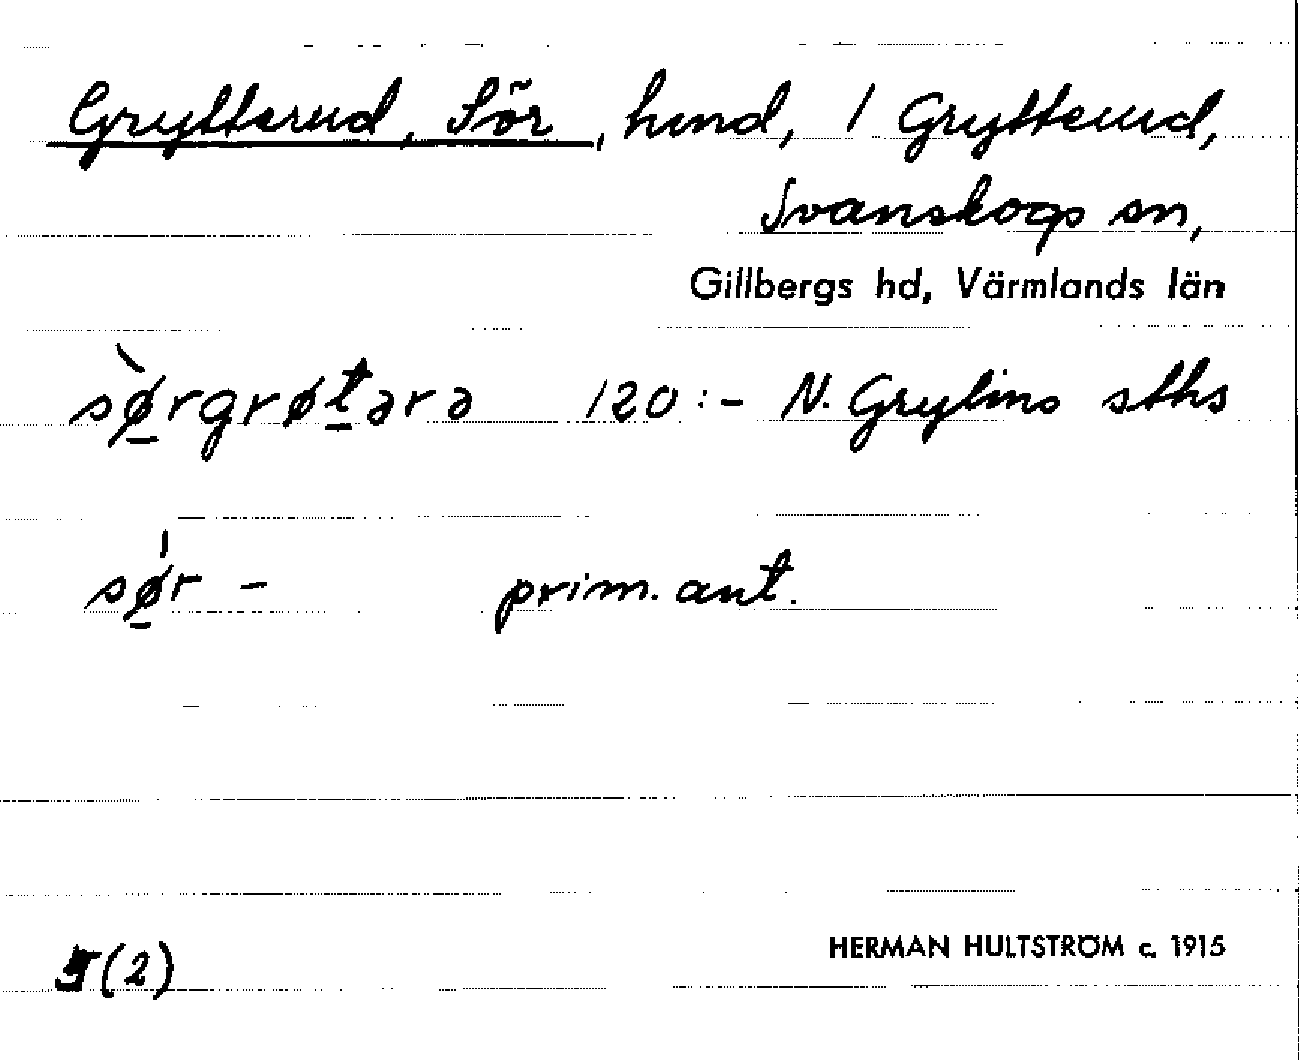 Grytterud, Sör, hmd, 1 Grytterud,
Svanskogs sn,
Gillbergs hd, Värmlands län
sø̀rgrøtərə 120:- N. Grylins sths
sø̍r - prim. ant.
(2)
HERMAN HULTSTRÖM c. 1915